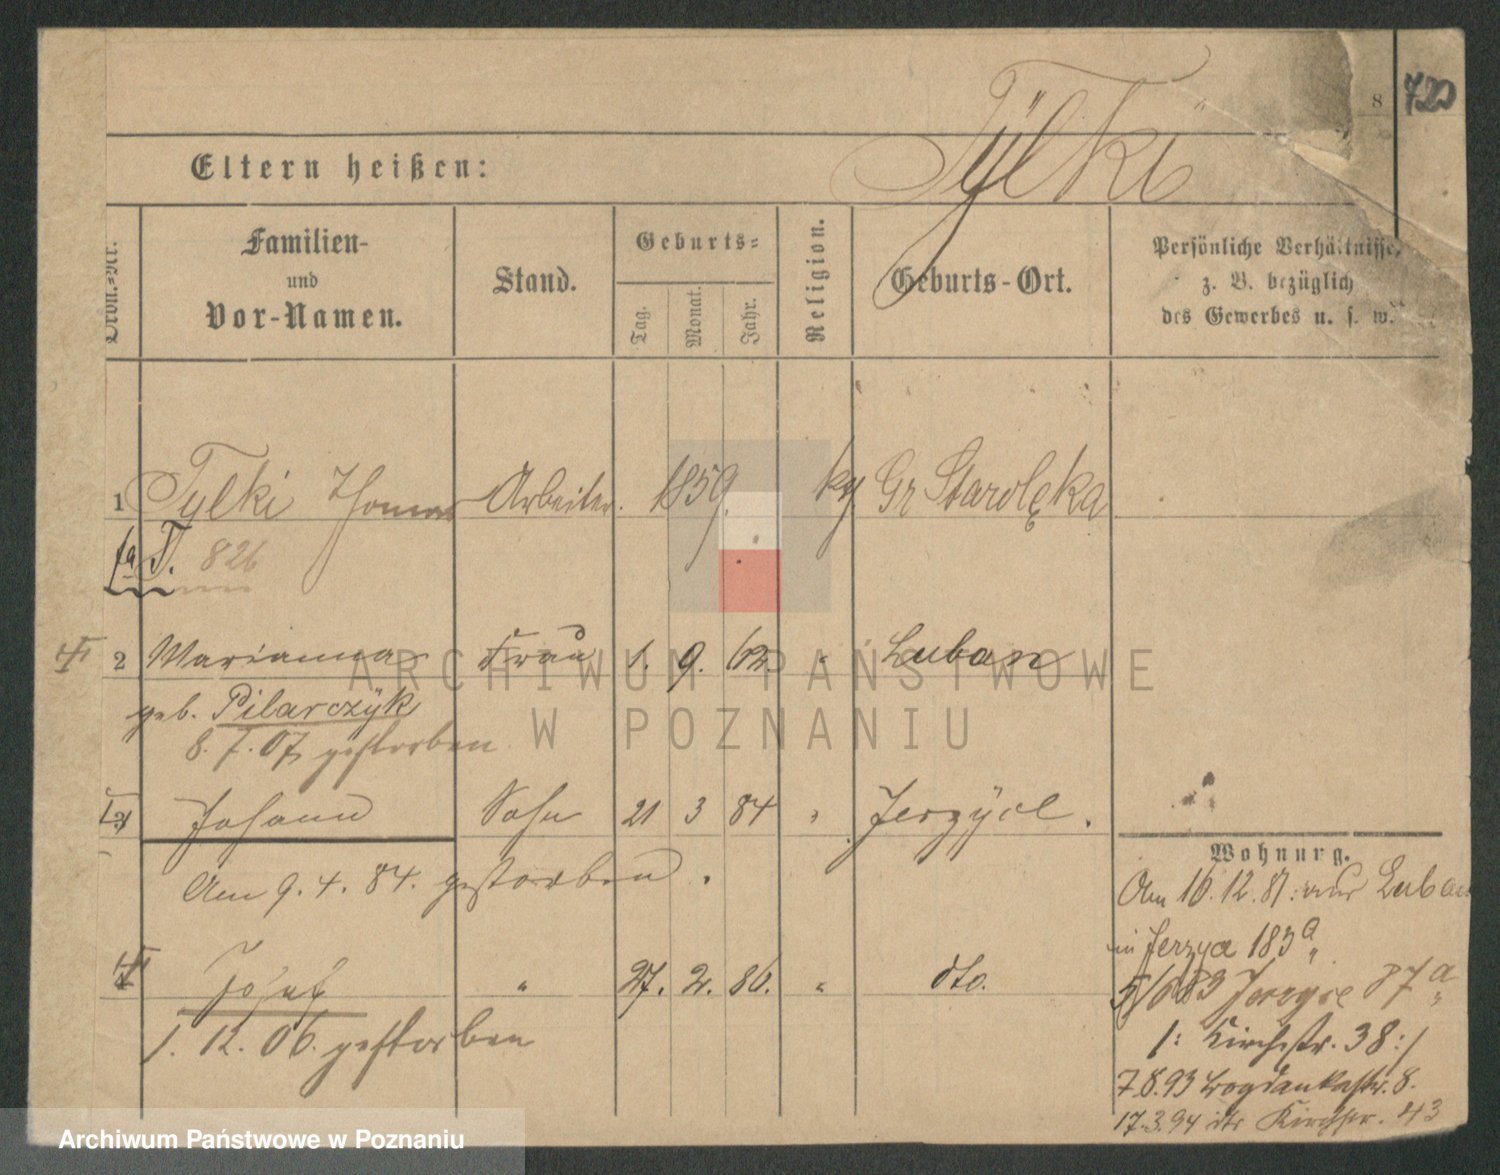 8 720
Tÿlki
Eltern heißen:
Ordn.-Nr.
Familien-
und
Vor-Namen.
Stand.
Geburts-
Tag.
Monat.
Jahr.
Religion.
Geburts-Ort.
Persönliche Verhältnisse,
z. B. bezüglich
des Gewerbes u. s. w.
1 Tylki Thomas Arbeiter. 1859. kg. Gr Starolęka
T. 826
2 Marianna Frau 1. 9. 62. " Luban
geb. Pilarczÿk
8. 7. 07 gestorben
3 Johann Sohn 21 3 84 " Jerzÿce.
Am 9. 4. 84. gestorben.
4 Josef " 27. 2. 86. " dto.
1. 12. 06. gestorben
Wohnung.
Am 16.12.87: aus Luban
in Jerzyce 183a
Jerzyce 87a
1: Kirchstr. 38:/
7.8.93 Bogdankastr. 8.
17.3.94 Kirchstr. 43
ARCHIWUM PAŃSTWOWE
W POZNANIU
Archiwum Państwowe w Poznaniu